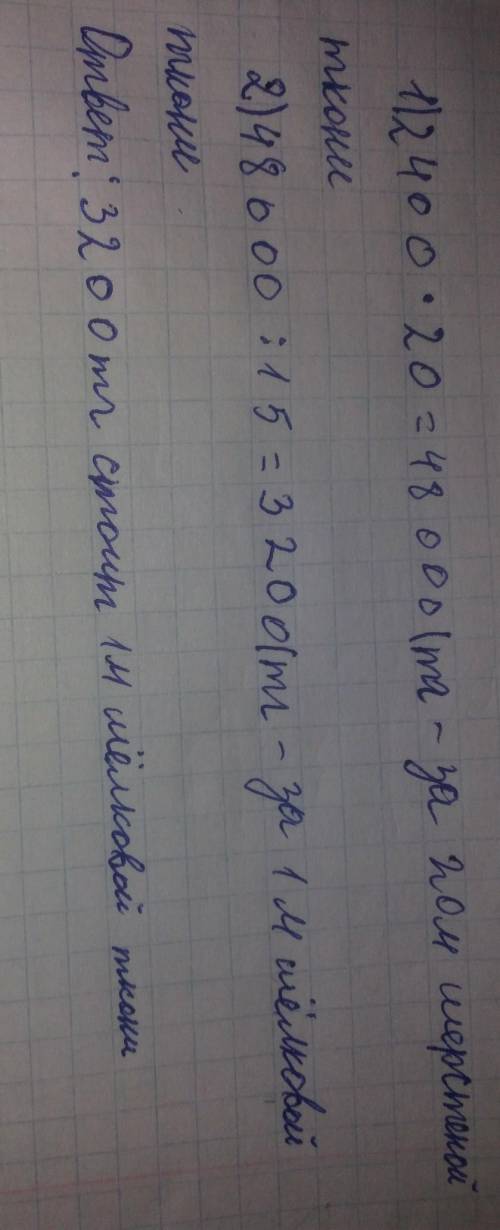 1) 2400 · 20 = 48000 (тг - за 20м шерстеной
ткони
2) 48000 : 15 = 3200 (тг - за 1 м шёлковой
ткони
Ответ: 3200тг стоит 1м шёлковой ткони